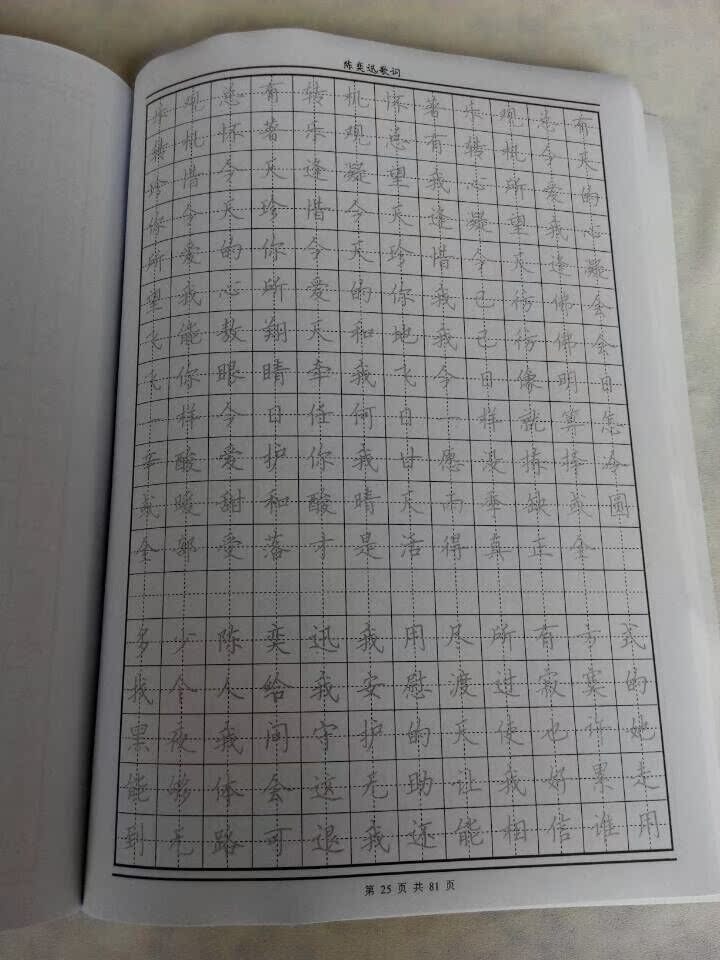 陈奕迅歌词
乐观总有转机怀著乐观总有
转机怀著乐观总有转机今天
珍惜今天逢凝望我心所爱的
你今天珍惜今天逢凝望我心
所爱的你今天珍惜今天逢凝
望我心所爱的你我已彷佛会
飞能敖翔天和地我已彷佛会
飞你眼睛牵我飞今日像明日
一样今日任何日一样就算怎
辛酸爱护你我甘愿没挣扎冷
或暖甜和酸晴天雨季缺或圆
全部受落才是活得真正全
多少陈奕迅我用尽所有方式
找个人给我安慰渡过寂寞的
黑夜我问守护的天使也许她
能够体会这无助让我好累走
到无路可退我还能相信谁用
第 25 页 共 81 页